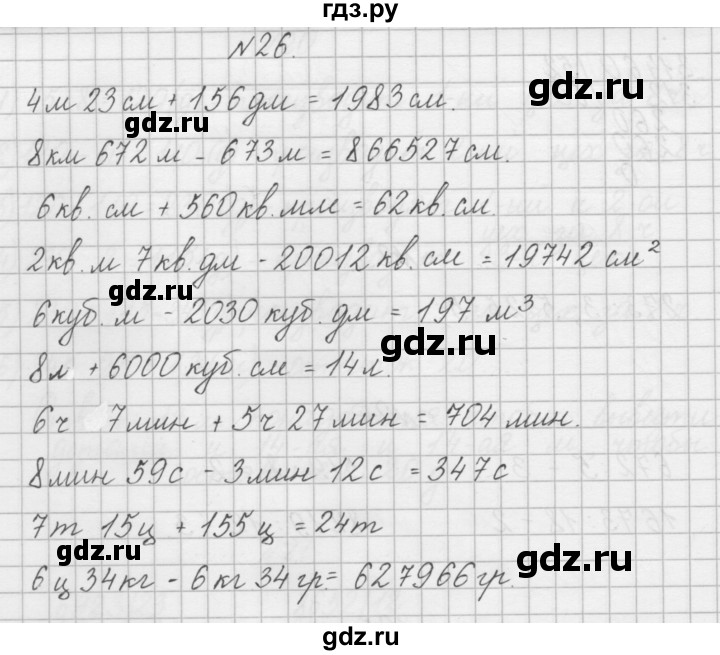 гдз.ру
№26.
4м 23см + 156дм = 1983см.
gdz.ru
gdz.ru
8км 672м - 673м = 866527см.
6кв. см + 560кв.мм = 62кв.см.
2кв.м 7кв.дм - 20012кв.см = 19742 см²
gdz.ru
6куб.м - 2030куб.дм = 197 м³
gdz.ru
8л + 6000куб.см = 14л.
6ч 7мин + 5ч 27мин = 704мин.
8мин 59с - 3мин 12с = 347с
7т 15ц + 155ц = 24т
gdz.ru
gdz.ru
6ц 34кг - 6кг 34гр = 627966гр.
gdz.ru